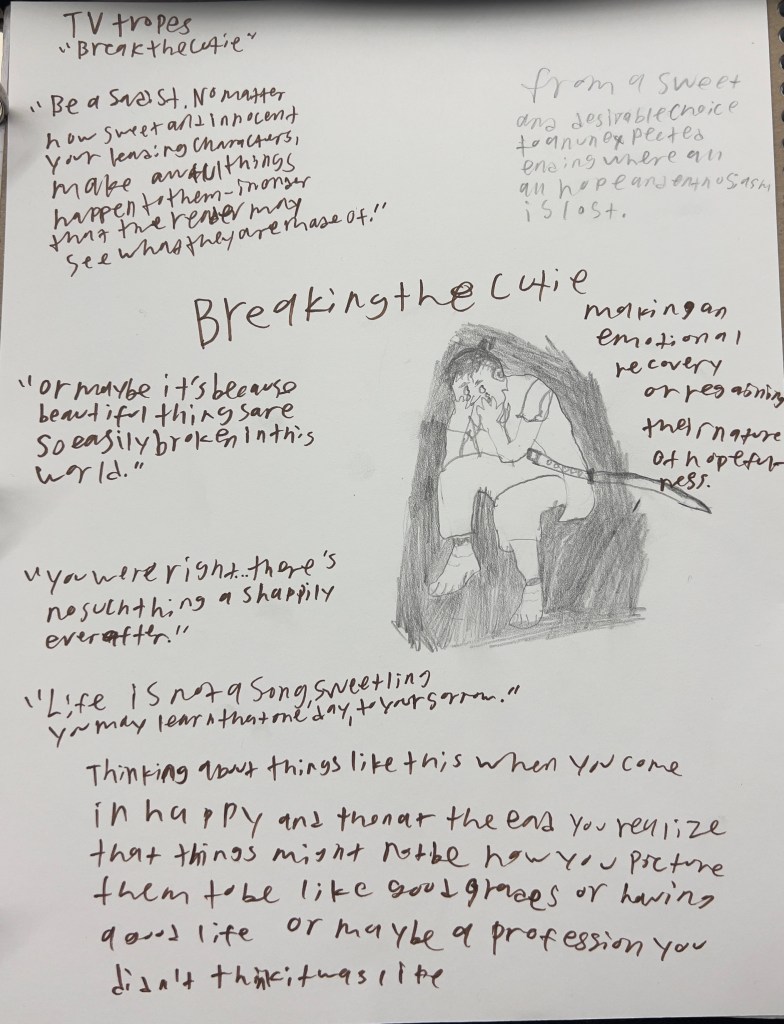 TV tropes
"Break the cutie"
"Be a sadist. No matter
how sweet and innocent
your leading characters,
make awful things
happen to them- in order
that the reader may
see what they are made of."
from a sweet
and desirable choice
to an unexpected
ending where all
all hope and enthosiasm
is lost.
Breaking the cutie
making an
emotional
recovery
or regaining
their nature
of hopeful-
ness.
"Or maybe it's because
beautiful things are
so easily broken in this
world."
"You were right...there's
no such thing as happily
ever after."
"Life is not a song, sweetling
you may learn that one day, to your sorrow."
Thinking about things like this when you come
in happy and then at the end you realize
that things might not be how you picture
them to be like good grades or having
a good life or maybe a profession you
didn't think it was like